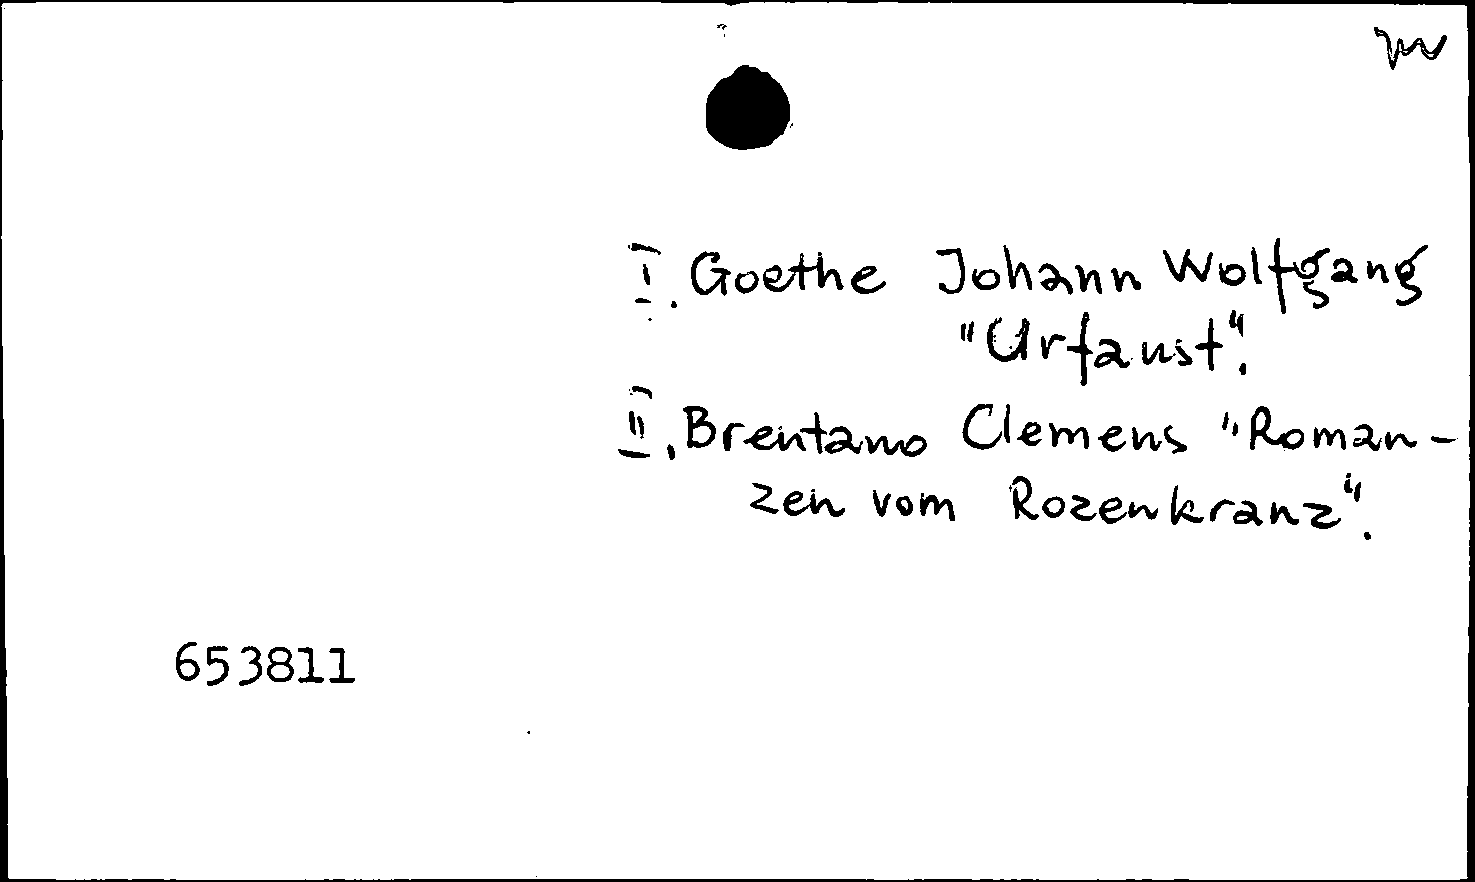 I. Goethe Johann Wolfgang
"Urfaust".
II. Brentano Clemens "Roman-
zen vom Rozenkranz".
653811